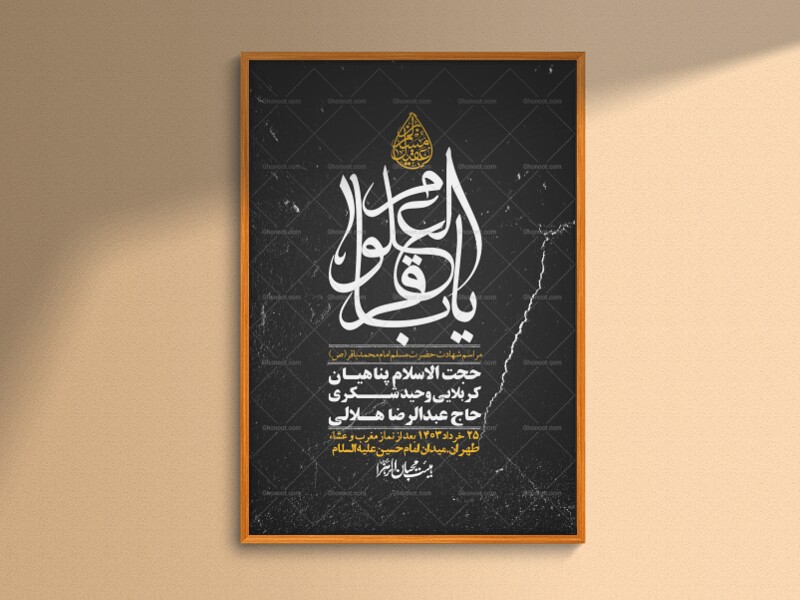 یا باقرالعلوم
مراسم شهادت حضرت مسلم امام محمد باقر (ص)
حجت الاسلام پناهیان
کربلایی وحید شکری
حاج عبدالرضا هلالی
۲۵ خرداد ۱۴۰۳ بعد از نماز مغرب و عشاء
طهران. میدان امام حسین علیه السلام
هیئت محبان الزهرا
Ghonoot.com